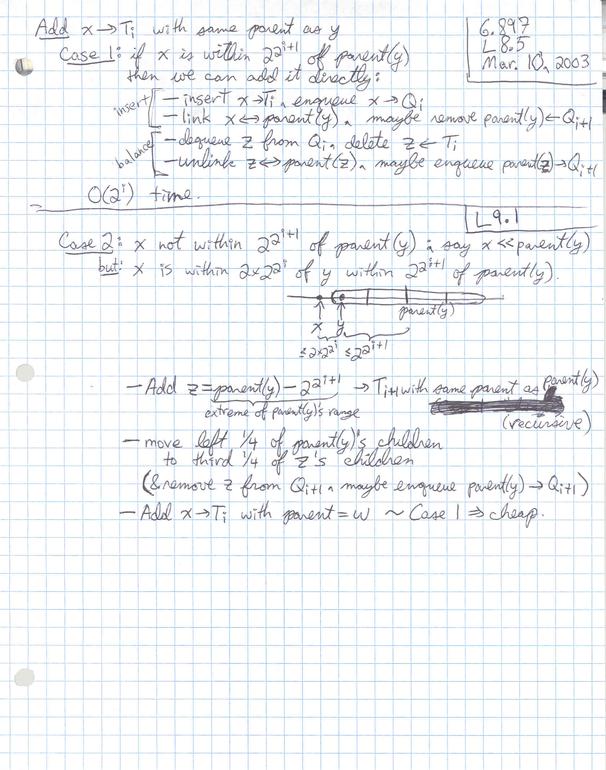 6.897
L 8.5
Mar. 10, 2003
Add x→Tᵢ with same parent as y
Case 1: if x is within 2^2^(i+1) of parent(y)
then we can add it directly:
insert
– insert x→Tᵢ, enqueue x→Qᵢ
– link x↔parent(y), maybe remove parent(y)←Qᵢ₊₁
balance
– dequeue z from Qᵢ, delete z←Tᵢ
– unlink z↔parent(z), maybe enqueue parent(z)→Qᵢ₊₁
O(2ⁱ) time.
L 9.1
Case 2: x not within 2^2^(i+1) of parent(y): say x << parent(y)
but: x is within 2×2^2^i of y within 2^2^(i+1) of parent(y).
parent(y)
x y
≤2×2^2^i ≤2^2^(i+1)
– Add z = parent(y) – 2^2^(i+1) → Tᵢ₊₁ with same parent as parent(y)
extreme of parent(y)'s range
(recursive)
– move left 1/4 of parent(y)'s children
to third 1/4 of z's children
(& remove z from Qᵢ₊₁, maybe enqueue parent(y)→Qᵢ₊₁)
– Add x→Tᵢ with parent = w ~ Case 1 ⇒ cheap.